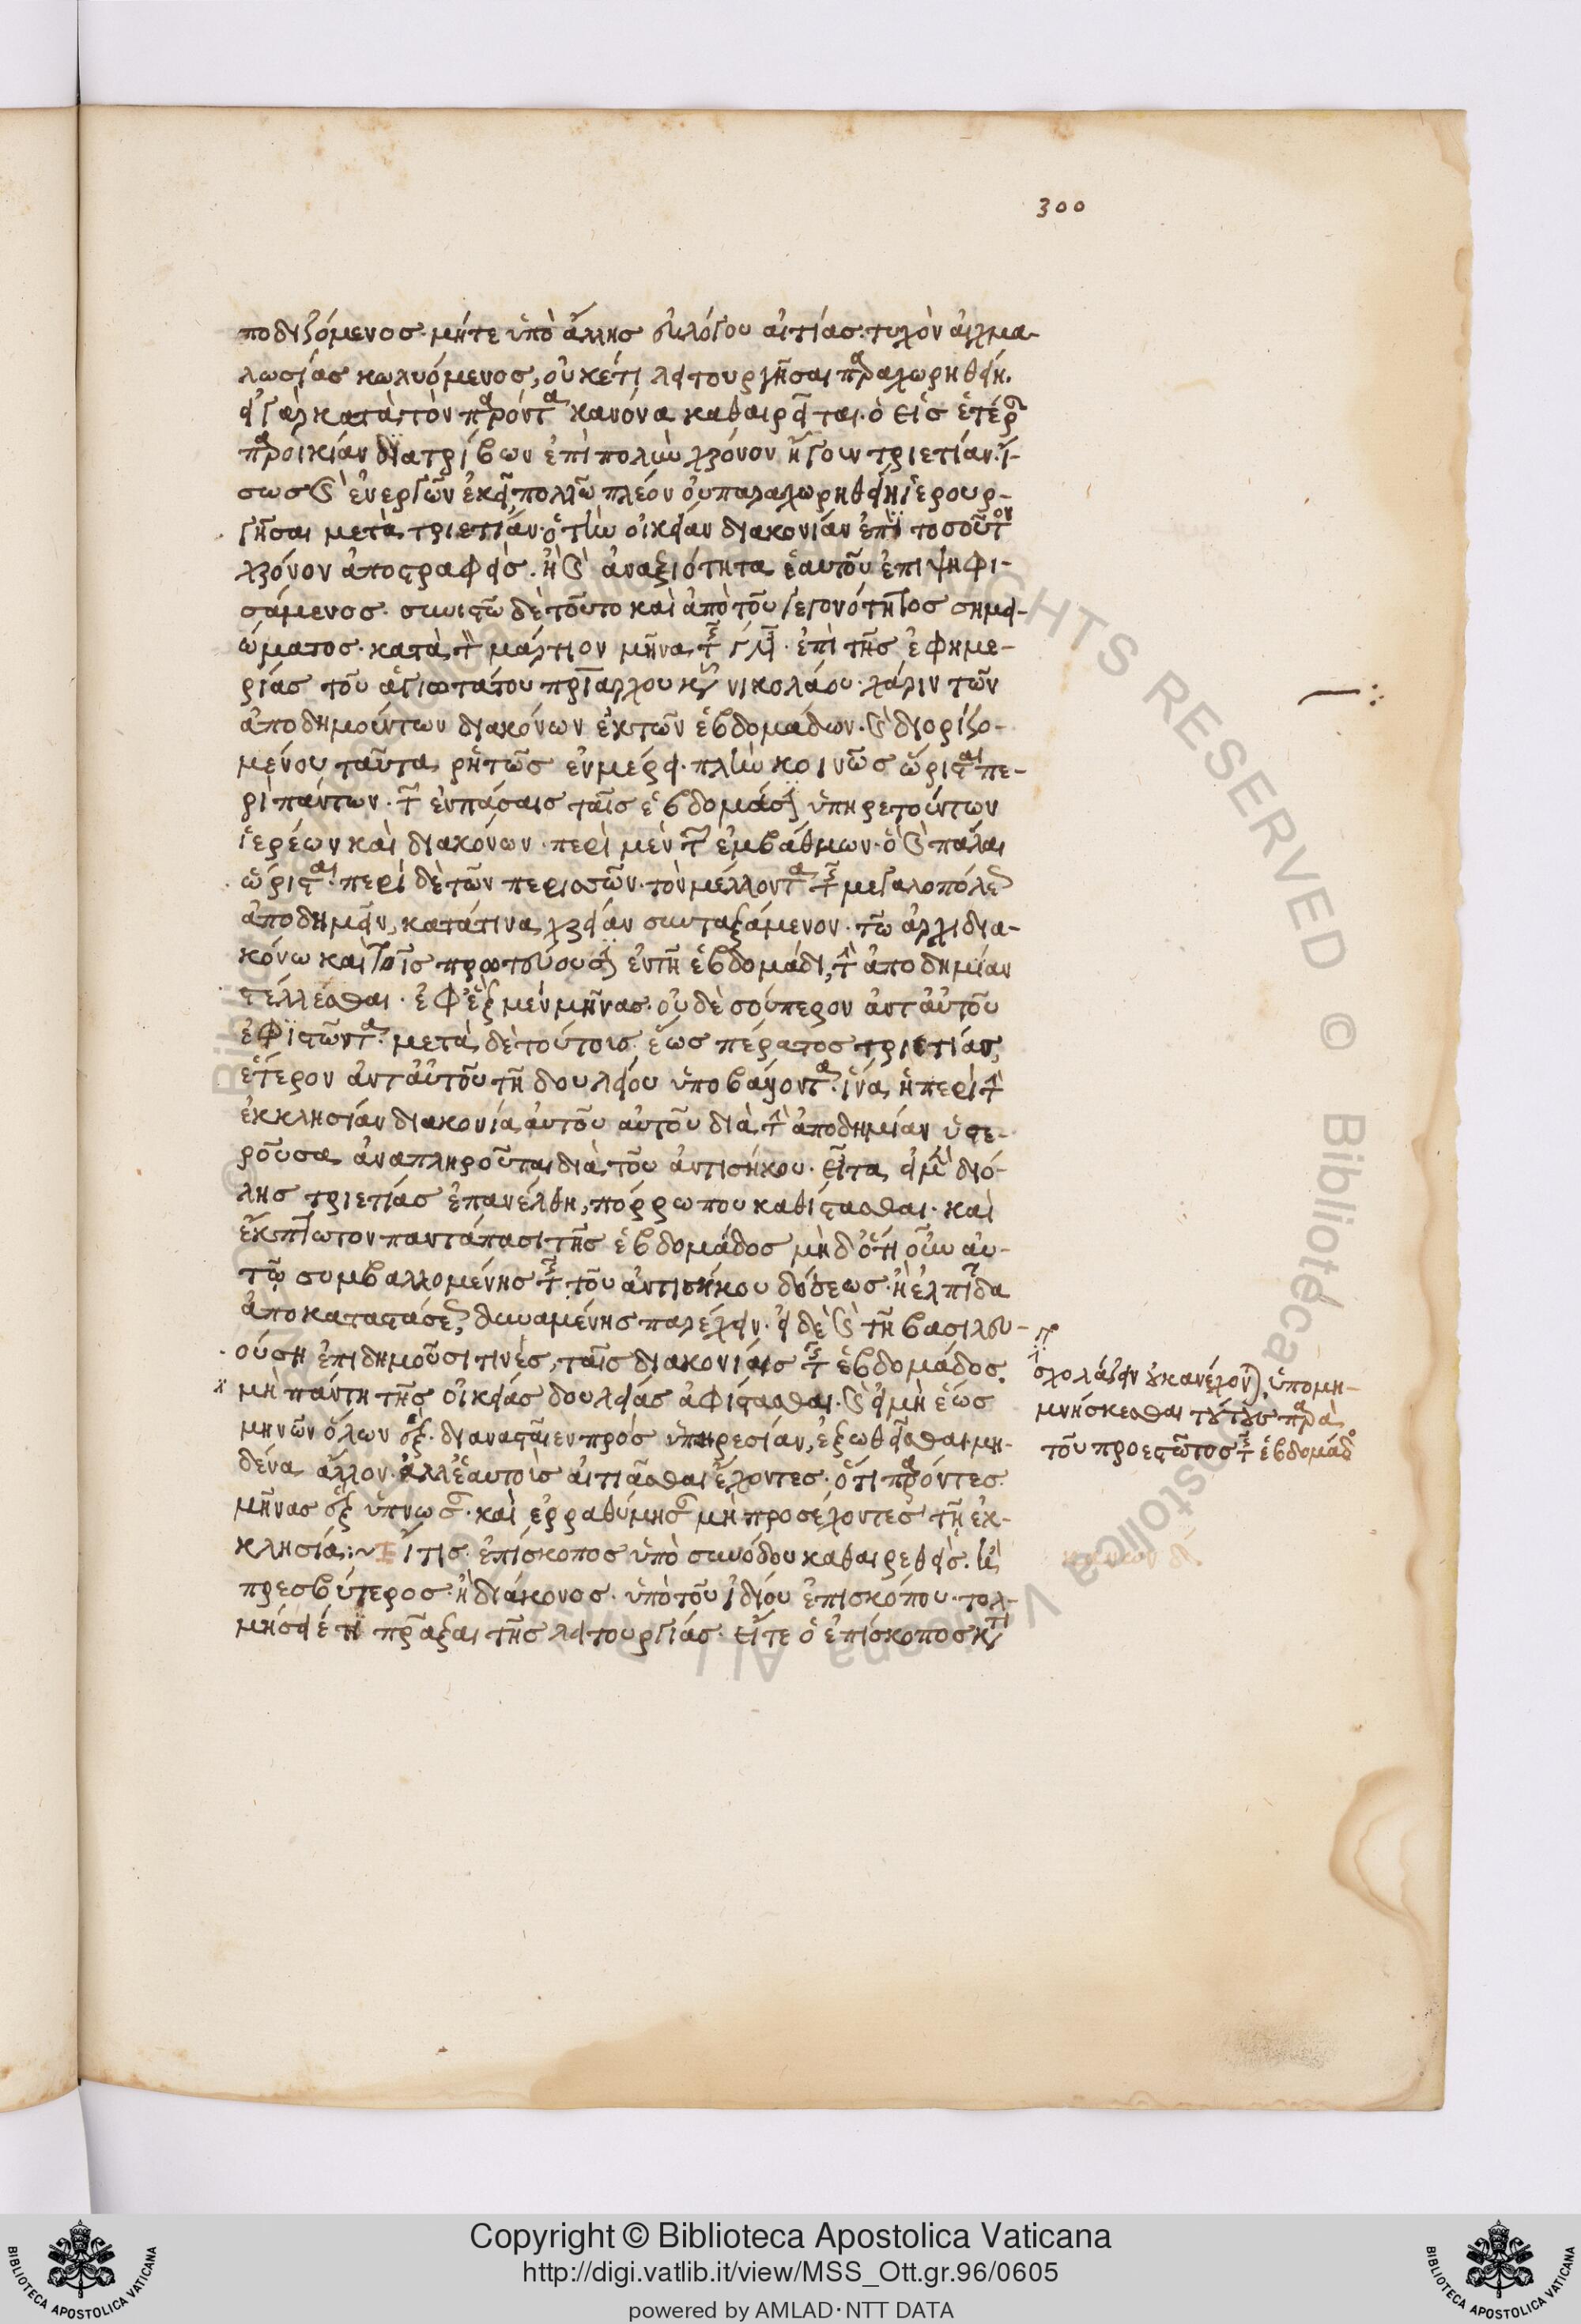 300
ποδιζόμενος· μήτε ὑπὸ ἄλλης εὐλόγου αἰτίας· τυχὸν αἰχμα-
λωσίας κωλυόμενος, οὐκέτι λειτουργῆσαι παραχωρηθείη.
εἰ γὰρ κατὰ τὸν παρόντα κανόνα καθαιρεῖται· ὁ εἰς ἑτέραν
παροικίαν διατρίβων ἐπὶ πολὺν χρόνον ἤγουν τριετίαν· ἴ-
σως καὶ ἐνεργῶν ἐκεῖ, πολλῶ πλέον οὐ παραχωρηθείη ἱερουρ-
γῆσαι μετὰ τριετίαν· ὁ τὴν οἰκείαν διακονίαν ἐπὶ τοσοῦτον
χρόνον ἀποστραφείς· ἢ καὶ ἀναξιότητα ἑαυτοῦ ἐπιψηφι-
σάμενος· συνιστῶ δὲ τοῦτο καὶ ἀπὸ τοῦ γεγονότος σημει-
ώματος· κατὰ τὸν μάρτιον μῆνα τῆς · ἐπὶ τῆς ἐφημε-
ρίας τοῦ ἁγιωτάτου πριάρχου κυροῦ νικολάου· χάριν τῶν
ἀποδημούντων διακόνων ἐκ τῶν ἑβδομάδων· καὶ διοριζο-
μένου ταῦτα ῥητῶς ἐν μέρει· πλὴν κοινῶς ὥρισται πε-
ρὶ πάντων· τῶν ἐν πάσαις ταῖς ἑβδομάσιν ὑπηρετούντων
ἱερέων καὶ διακόνων· περὶ μὲν τῶν ἐμβάθμων· ὃ καὶ πάλαι
ὥρισται· περὶ δὲ τῶν περισσῶν· τὸν μέλλοντα τῆς μεγαλοπόλεως
ἀποδημεῖν, κατά τινα χρείαν συνταξάμενον· τῶ ἀρχιδια-
κόνω καὶ τοῖς πρωτεύουσιν ἐν τῆ ἑβδομάδι, τὴν ἀποδημίαν
στέλλεσθαι· ἐφ' ἓξ μὲν μῆνας· οὐδὲ σόύπερον ἀντ αὐτοῦ
ἐφιστῶντα· μετὰ δὲ τούτοις ἕως πέρατος τριετίας,
ἕτερον ἀντ αὐτοῦ τῆ δουλείου ὑποβάλλοντα· ἵνα ἡ περὶ τὴν
ἐκκλησίαν διακονία αὐτοῦ αὐτοῦ διὰ τὴν ἀποδημίαν ὑστε-
ροῦσα ἀναπληροῦται διὰ τοῦ ἀντισήκου· εἶτα εἰ μὴ δι' ὅ-
λης τριετίας ἐπανέλθη, πόρρω που καθίστασθαι· καὶ
ἔκπτωτον παντάπασι τῆς ἑβδομάδος μὴδ' ὁτιοῦν αὐ-
τῷ συμβαλλομένης τῆς τοῦ ἀντισήκου δόσεως· ἢ ἐλπίδα
ἀποκαταστάσεως, δυναμένης παρέχειν· εἰ δὲ καὶ τῆ βασιλευ-
ούση ἐπιδημοῦσι τινὲς, ταῖς διακονίαις τῆς ἑβδομάδος.
μὴ πάντη τῆς οἰκείας δουλείας ἀφίστασθαι· καὶ εἰ μὴ ἕως
μηνῶν ὅλων ἓξ· διαναστᾶιεν πρὸς ὑπηρεσίαν, ἐξωθεῖσθαι· μη-
δένα ἄλλον· ἀλλ' ἑαυτοὺς αἰτιᾶσθαι ἔχοντες· ὅτι παρόντες
μῆνας ἓξ ὕπνωσαν· καὶ ἐρραθύμησαν μὴ προσέχοντες τῆ ἐκ-
κλησία:~ Εἴ τις ἐπίσκοπος ὑπὸ συνόδου καθαιρεθείς· ἢ
πρεσβύτερος· ἢ διάκονος· ὑπὸ τοῦ ἰδίου ἐπισκόπου· τολ-
μήσειέ τι πρᾶξαι τῆς λειτουργίας· εἴτε ὁ ἐπίσκοπος κατὰ
σχολάζειν οὐκ ἀνέχονται, ὑπομη-
μνήσκεσθαι τούτους παρὰ
τοῦ προεστῶτος τῆς ἑβδομάδος
Copyright © Biblioteca Apostolica Vaticana
http://digi.vatlib.it/view/MSS_Ott.gr.96/0605
powered by AMLAD·NTT DATA